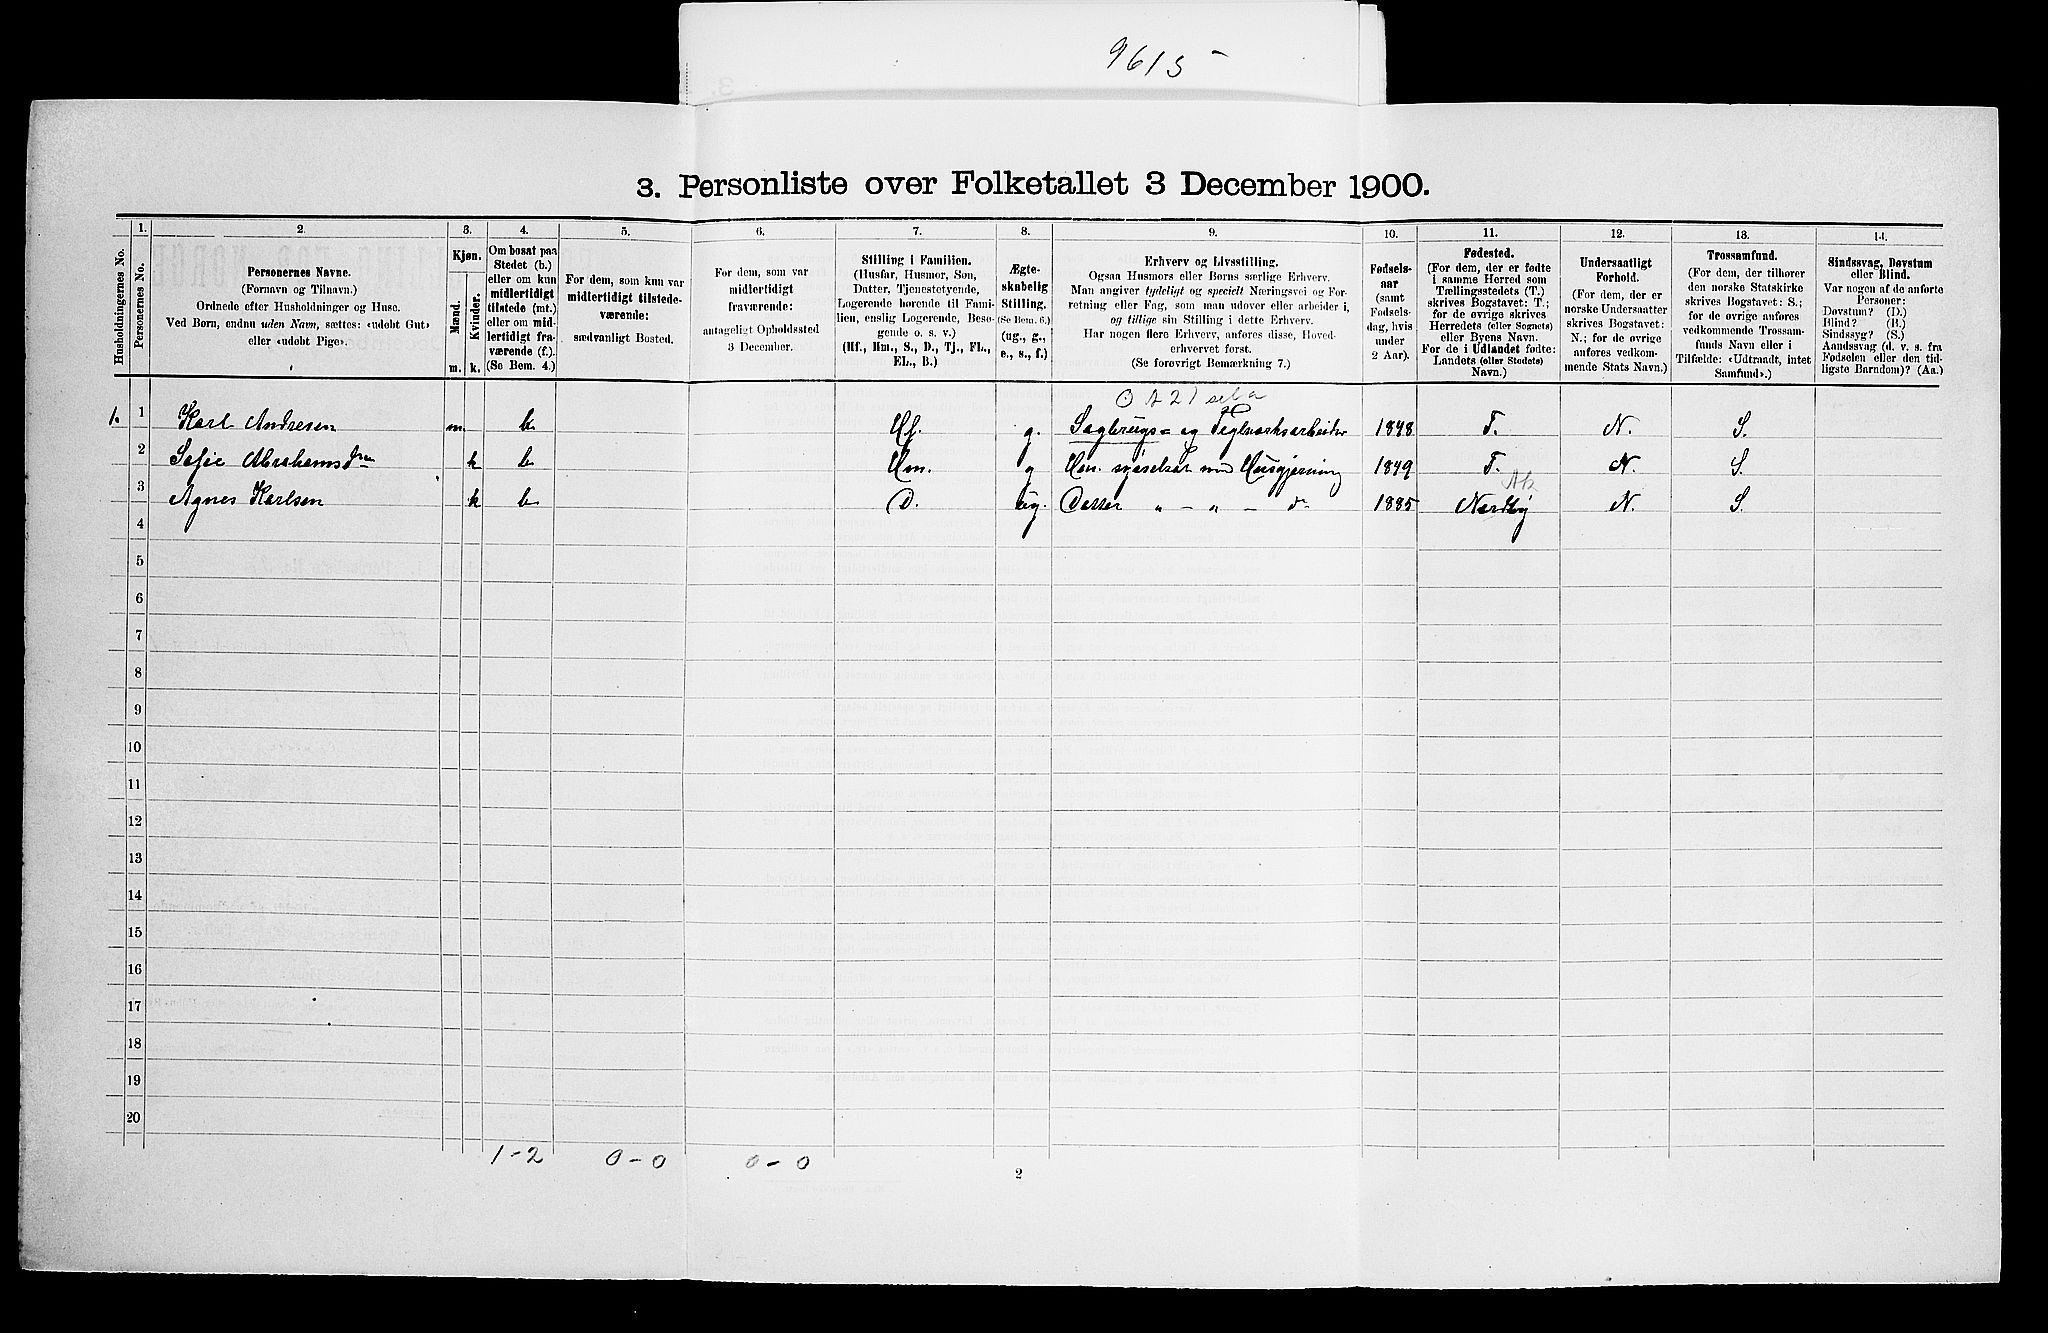 9615
3. Personliste over Folketallet 3 December 1900.
Husholdningernes No.
1.
Personernes No.
2.
Personernes Navne.
(Fornavn og Tilnavn.)
Ordnede efter Husholdninger og Huse.
Ved Børn, endnu uden Navn, sættes: «udøbt Gut»
eller «udøbt Pige».
3.
Kjøn.
Mænd.
Kvinder.
m. k.
4.
Om bosat paa
Stedet (b.)
eller om kun
midlertidigt
tilstede (mt.)
eller om mid-
lertidigt fra-
værende (f.).
(Se Bem. 4.)
5.
For dem, som kun var
midlertidigt tilstede-
værende:
sædvanligt Bosted.
6.
For dem, som var
midlertidigt
fraværende:
antageligt Opholdssted
3 December.
7.
Stilling i Familien.
(Husfar, Husmor, Søn,
Datter, Tjenestetyende,
Logerende hørende til Fami-
lien, enslig Logerende, Besø-
gende o. s. v.)
(Hf., Hm., S., D., Tj., FL.,
EL., B.)
8.
Ægte-
skabelig
Stilling.
(Se Bem. 6.)
(ug., g.,
e., s., f.)
9.
Erhverv og Livsstilling.
Ogsaa Husmors eller Børns særlige Erhverv.
Man angiver tydeligt og specielt Næringsvei og For-
retning eller Fag, som man udøver eller arbeider i,
og tillige sin Stilling i dette Erhverv.
Har nogen flere Erhverv, anføres disse, Hoved-
erhvervet først.
(Se forøvrigt Bemærkning 7.)
10.
Fødsels-
aar
(samt
Fødsels-
dag, hvis
under
2 Aar).
11.
Fødested.
(For dem, der er fødte
i samme Herred som
Tællingsstedets (T.)
skrives Bogstavet: T.;
for de øvrige skrives
Herredets (eller Sognets)
eller Byens Navn.
For de i Udlandet fødte:
Landets (eller Stedets)
Navn.)
12.
Undersaatligt
Forhold.
(For dem, der er
norske Undersaatter
skrives Bogstavet:
N.; for de øvrige
anføres vedkom-
mende Stats Navn.)
13.
Trossamfund.
(For dem, der tilhører
den norske Statskirke
skrives Bogstavet: S.;
for de øvrige anføres
vedkommende Trossam-
funds Navn eller i
Tilfælde: «Udtraadt, intet
Samfund».)
14.
Sindssvag, Døvstum
eller Blind.
Var nogen af de anførte
Personer:
Døvstum? (D.)
Blind? (B.)
Sindssyg? (S.)
Aandssvag (d. v. s. fra
Fødselen eller den tid-
ligste Barndom)? (Aa.)
1. 1 Karl Andresen m. b. Hf. g. Sagbrugs- og Teglværksarbeider 1848 T. N. S.
2 Sofie Abrahamsdrn k b Hm. g Hm. sysselsat med Husgjerning 1849 T. N. S.
3 Agnes Karlsen k b D. ug. Datter " - " - do 1885 Nordby N. S.
4
5
6
7
8
9
10
11
12
13
14
15
16
17
18
19
20
1-2 0-0 0-0
2